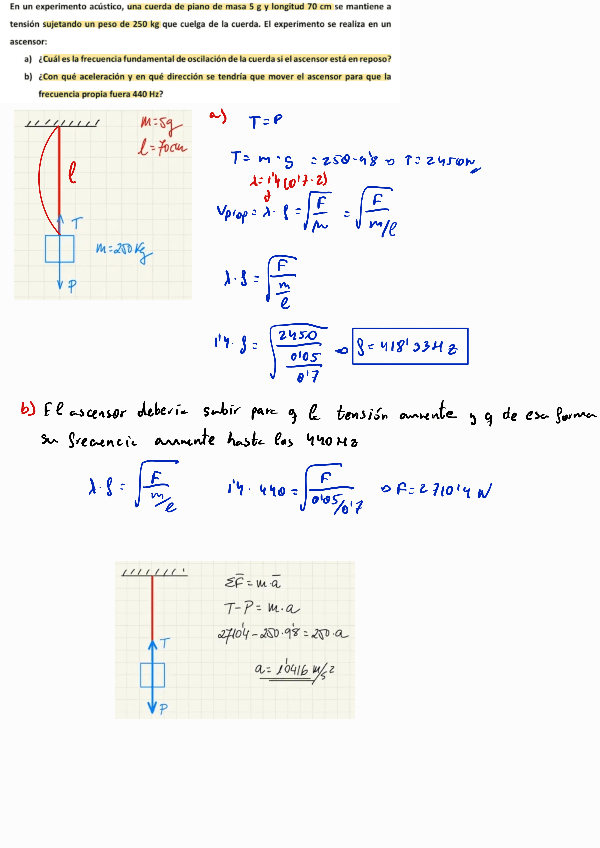 En un experimento acústico, una cuerda de piano de masa 5 g y longitud 70 cm se mantiene a
tensión sujetando un peso de 250 kg que cuelga de la cuerda. El experimento se realiza en un
ascensor:
a) ¿Cuál es la frecuencia fundamental de oscilación de la cuerda si el ascensor está en reposo?
b) ¿Con qué aceleración y en qué dirección se tendría que mover el ascensor para que la
frecuencia propia fuera 440 Hz?
m=5g
l=70cm
l
T
m=250Kg
P
a) T=P
T= m·g = 250·9'8 → T=2450N
λ=1'4 (0'7·2)
Vprop= λ·f = √F/μ = √F/m/l
λ·f = √F/m/l
1'4·f = √2450/0'05/0'7 → f=418'33Hz
b) El ascensor debería subir para q la tensión aumente y q de esa forma
su frecuencia aumente hasta los 440Hz
λ·f = √F/m/l 1'4·440 = √F/0'05/0'7 → F=2710'4 N
T
P
ΣF̄ = m·ā
T-P= m·a
2710'4-250·9'8=250·a
a=1'0416 m/s²